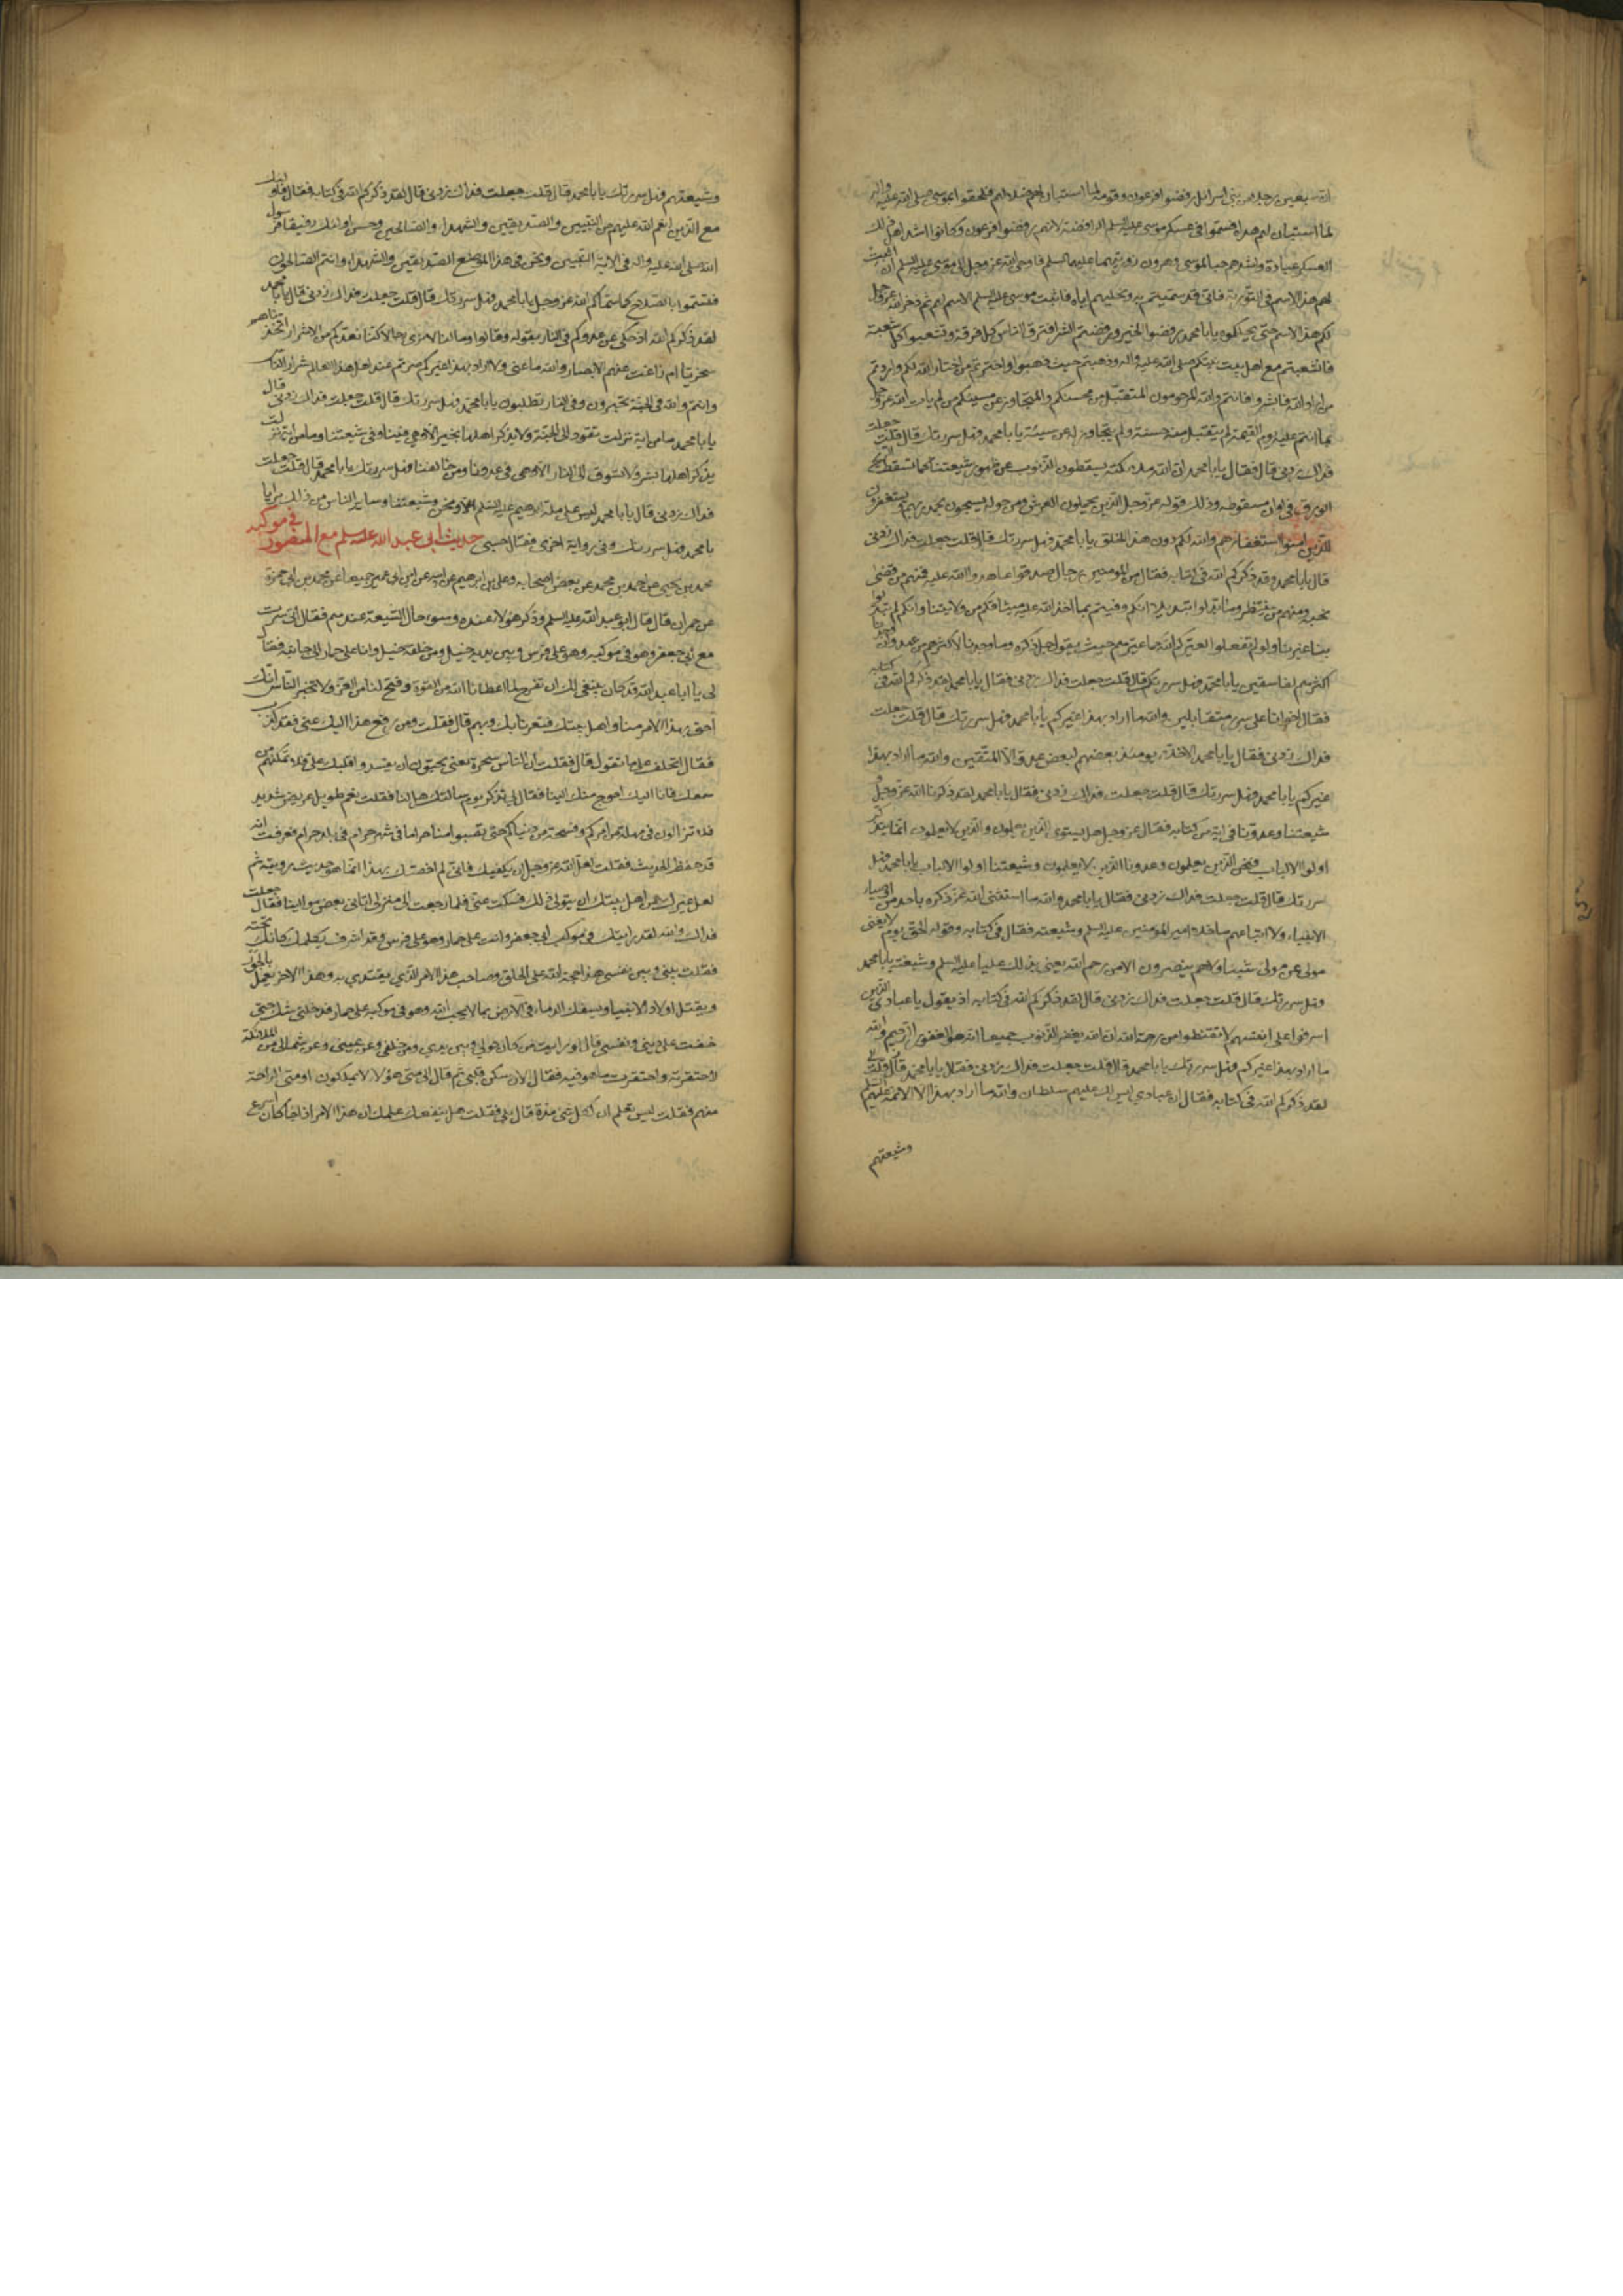 ان سبعين رجلا من بني اسرائيل رفضوا فرعون وقومه لما استبان لهم ضلالهم فلحقوا بموسى صلى الله عليه واله
لما استبان لهم هداه فسموا في عسكر موسى عليه السلم الرافضة لانهم رفضوا فرعون وكانوا اشد اهل ذلك
العسكر عبادة واشدهم حبا لموسى وهرون وذريتهما عليهما السلم فاوحى الله عز وجل الى موسى عليه السلم ان اثبت
لهم هذا الاسم في التورية فاني قد سميتهم به ونحلتهم اياه فاثبت موسى عليه السلم الاسم لهم ثم ذخر الله عز وجل
لكم هذا الاسم حتى نحلكموه يا با محمد رفضوا الخير ورفضتم الشر افترق الناس كل فرقة وتشعبوا كل شعبة
فانشعبتم مع اهل بيت نبيكم صلى الله عليه واله وذهبتم حيث ذهبوا واخترتم من اختار الله لكم واردتم
من اراد الله فابشروا فابشروا فانتم والله المرحومون المتقبل من محسنكم والمتجاوز عن مسيئكم من لم يات الله عز وجل
بما انتم عليه يوم القيمة لم يتقبل منه حسنة ولم يتجاوز له عن سيئة يا با محمد فهل سررتك قال قلت جعلت
فداك زدني قال فقال يا با محمد ان لله ملائكة يسقطون الذنوب عن ظهور شيعتنا كما تسقط الريح
الورق في اوان سقوطه وذلك قوله عز وجل الذين يحملون العرش ومن حوله يسبحون بحمد ربهم ويستغفرون
للذين امنوا استغفارهم والله لكم دون هذا الخلق يا با محمد فهل سررتك قال قلت جعلت فداك زدني
قال يا با محمد وقد ذكركم الله في كتابه فقال من المومنين رجال صدقوا ما عاهدوا الله عليه فمنهم من قضى
نحبه ومنهم من ينتظر وما بدلوا تبديلا انكم وفيتم بما اخذ الله عليه ميثاقكم من ولايتنا وانكم لم تبدلوا
بنا غيرنا ولو لم تفعلوا لعيركم الله كما عيرهم حيث يقول جل ذكره وما وجدنا لاكثرهم من عهد وان وجدنا
اكثرهم لفاسقين يا با محمد فهل سررتك قال قلت جعلت فداك زدني فقال يا با محمد لقد ذكركم الله في كتابه
فقال اخوانا على سرر متقابلين والله ما اراد بهذا غيركم يا با محمد فهل سررتك قال قلت جعلت
فداك زدني فقال يا با محمد الاخلاء يومئذ بعضهم لبعض عدو الا المتقين والله ما اراد بهذا
غيركم يا با محمد فهل سررتك قال قلت جعلت فداك زدني فقال يا با محمد لقد ذكرنا الله عز وجل و
شيعتنا وعدونا في اية من كتابه فقال عز وجل هل يستوي الذين يعلمون والذين لا يعلمون انما يتذكر
اولوا الالباب فنحن الذين يعلمون وعدونا الذين لا يعلمون وشيعتنا اولوا الالباب يا با محمد فهل
سررتك قال قلت جعلت فداك زدني فقال يا با محمد والله ما استثنى الله عز ذكره باحد من اوصياء
الانبياء ولا اتباعهم ما خلا امير المومنين عليه السلم وشيعته فقال في كتابه وقوله الحق يوم لا يغني
مولى عن مولى شيئا ولا هم ينصرون الا من رحم الله يعني بذلك عليا عليه السلم وشيعته يا با محمد
فهل سررتك قال قلت جعلت فداك زدني قال لقد ذكركم الله في كتابه اذ يقول يا عبادي الذين
اسرفوا على انفسهم لا تقنطوا من رحمة الله ان الله يغفر الذنوب جميعا انه هو الغفور الرحيم والله
ما اراد بهذا غيركم فهل سررتك يا با محمد قال قلت جعلت فداك زدني فقال يا با محمد
لقد ذكركم الله في كتابه فقال ان عبادي ليس لك عليهم سلطان والله ما اراد بهذا الا الائمة عليهم السلم
وشيعتهم
وشيعتهم فهل سررتك يا با محمد قال قلت جعلت فداك زدني قال لقد ذكركم الله في كتابه فقال فاولئك
مع الذين انعم الله عليهم من النبيين والصديقين والشهداء والصالحين وحسن اولئك رفيقا فرسول
الله صلى الله عليه واله في الاية النبيين ونحن في هذا الموضع الصديقين والشهداء وانتم الصالحون
فتسموا بالصلاح كما سماكم الله عز وجل يا با محمد فهل سررتك قال قلت جعلت فداك زدني قال يا با محمد
لقد ذكركم الله اذ حكى عن عدوكم في النار بقوله وقالوا ما لنا لا نرى رجالا كنا نعدهم من الاشرار اتخذناهم
سخريا ام زاغت عنهم الابصار والله ما عنى ولا اراد بهذا غيركم صرتم عند اهل هذا العالم شرار الناس
وانتم والله في الجنة تحبرون وفي النار تطلبون يا با محمد فهل سررتك قال قلت جعلت فداك زدني قال
يا با محمد ما من اية نزلت تقود الى الجنة ولا يذكر اهلها بخير الا وهي فينا وفي شيعتنا وما من اية نزلت
يذكر اهلها بشر ولا تسوق الى النار الا وهي في عدونا ومن خالفنا فهل سررتك يا با محمد قال قلت جعلت
فداك زدني قال يا با محمد ليس على ملة ابرهيم عليه السلم الا نحن وشيعتنا وساير الناس من ذلك براء يا
با محمد فهل سررتك وفي رواية اخرى فقال حسبي حديث ابي عبد الله عليه سلم مع المنصور في موكبه
محمد بن يحيى عن احمد بن محمد عن بعض اصحابه وعلي بن ابرهيم عن ابيه عن ابن ابي عمير جميعا عن محمد بن ابي حمزة
عن حمران قال قال ابو عبد الله عليه السلم وذكر هؤلاء عنده وسوء حال الشيعة عندهم فقال اني سرت
مع ابي جعفر وهو في موكبه وهو على فرس وبين يديه خيل ومن خلفه خيل وانا على حمار الى جانبه فقال
لي يا ابا عبد الله قد كان ينبغي لك ان تفرح بما اعطانا الله من القوة وفتح لنا من العز ولا تخبر الناس انك
احق بهذا الامر منا واهل بيتك فتغرينا بك وبهم قال فقلت ومن رفع هذا اليك عني فقد كذب
فقال اتحلف على ما تقول قال فقلت ان الناس سحرة يعني يحبون ان يفسدوا قلبك علي فلا تمكنهم من
سمعك فانا اليك احوج منك الينا فقال لي تذكر يوم سالتك هل لنا فقلت نعم طويل عريض شديد
فلا تزالون في مهلة من امركم وفسحة من دنياكم حتى تصيبوا منا دما حراما في شهر حرام في بلد حرام فعرفت انه
قد حفظ الحديث فقلت لعل الله عز وجل ان يكفيك فاني لم اخصك بهذا انما هو حديث رويته ثم
لعل غيرك من اهل بيتك ان يتولى ذلك فسكت عني فلما رجعت الى منزلي اتاني بعض موالينا فقال جعلت
فداك والله لقد رايتك في موكب ابي جعفر وانت على حمار وهو على فرس وقد اشرف يكلمك كانك تحته
فقلت بيني وبين نفسي هذا حجة الله على الخلق وصاحب هذا الامر الذي يقتدى به وهذا الاخر يعمل بالجور
ويقتل اولاد الانبياء ويسفك الدماء في الارض بما لا يحب الله وهو في موكبه وانت على حمار فدخلني شك حتى
خفت على ديني ونفسي قال لو رايت من كان حولي وبين يدي ومن خلفي وعن يميني وعن شمالي من الملائكة
لاحتقرته واحتقرت ما هو فيه فقال الان سكن قلبي ثم قال الى متى هؤلاء يملكون او متى الراحة
منهم فقلت ليس تعلم ان لكل شئ مدة قال بلى فقلت هل ينفعك علمك ان هذا الامر اذا جاء كان اسرع